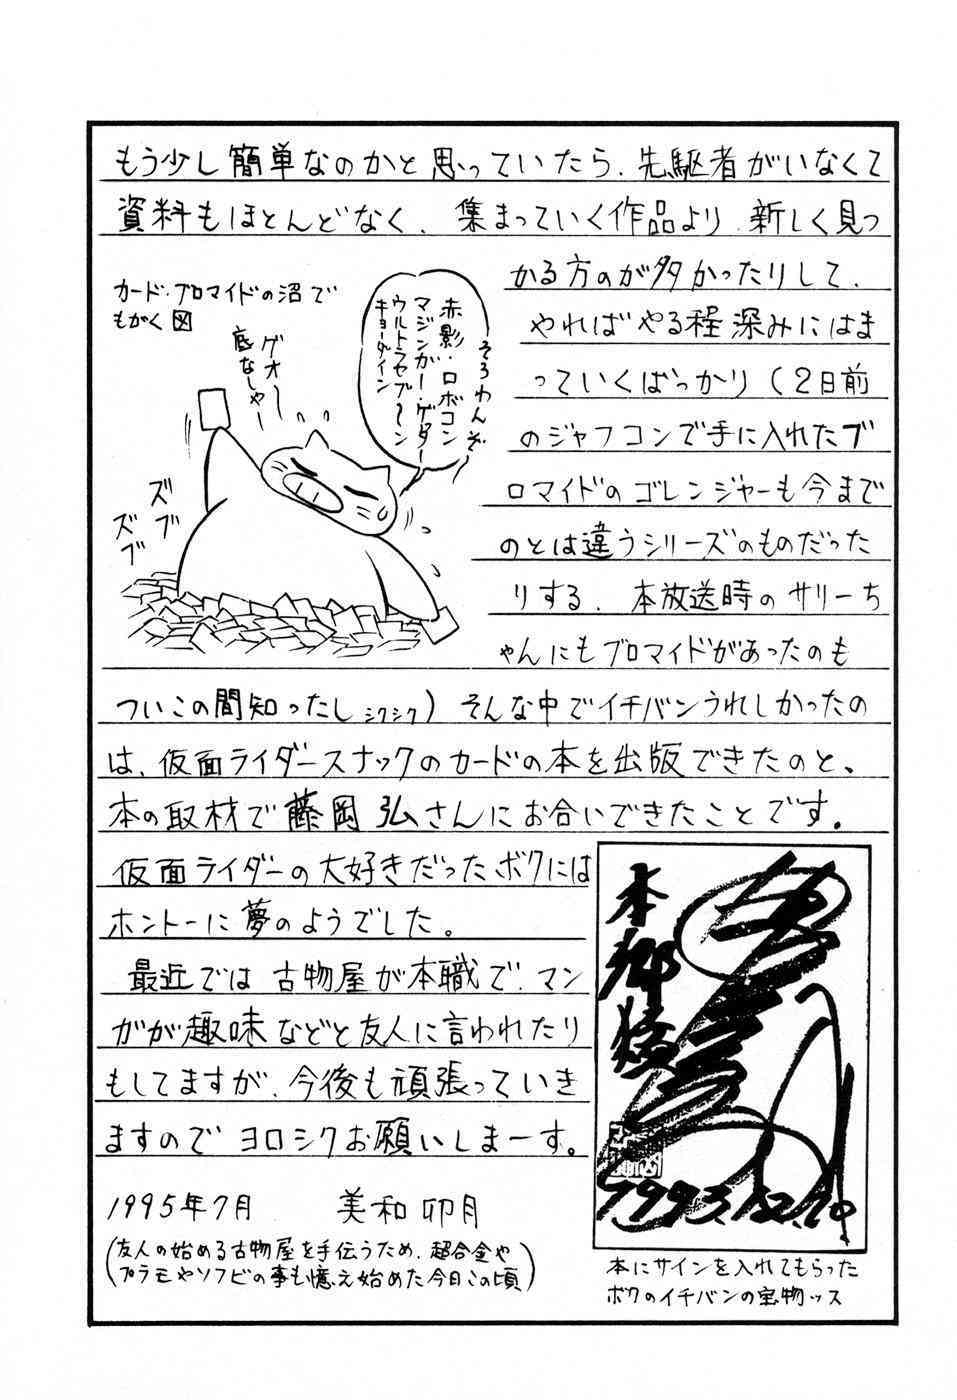 もう少し簡単なのかと思っていたら、先駆者がいなくて
資料もほとんどなく、集まっていく作品より、新しく見つ
かる方のが多かったりして、
やればやる程深みにはま
っていくばっかり(2日前
のジャフコンで手に入れたブ
ロマイドのゴレンジャーも今まで
のとは違うシリーズのものだった
りする、本放送時のサリーち
ゃんにもブロマイドがあったのも
ついこの間知ったし シクシク)そんな中でイチバンうれしかったの
は、仮面ライダースナックのカードの本を出版できたのと、
本の取材で藤岡弘さんにお合いできたことです。
仮面ライダーの大好きだったボクには
ホントーに夢のようでした。
最近では古物屋が本職で、マン
ガが趣味などと友人に言われたり
もしてますが、今後も頑張っていき
ますのでヨロシクお願いしまーす。
1995年7月 美和卯月
(友人の始める古物屋を手伝うため、超合金や
プラモやソフビの事も憶え始めた今日この頃)
カード・ブロマイドの沼で
もがく図
ゲオー
底なしゃー
そろわんぞ〜
赤影・ロボコン
マジンガー・ゲッター
ウルトラセブーン
キョーダイン
ズブ
ズブ
本郷猛
1993.12.20.
本にサインを入れてもらった
ボクのイチバンの宝物ッス